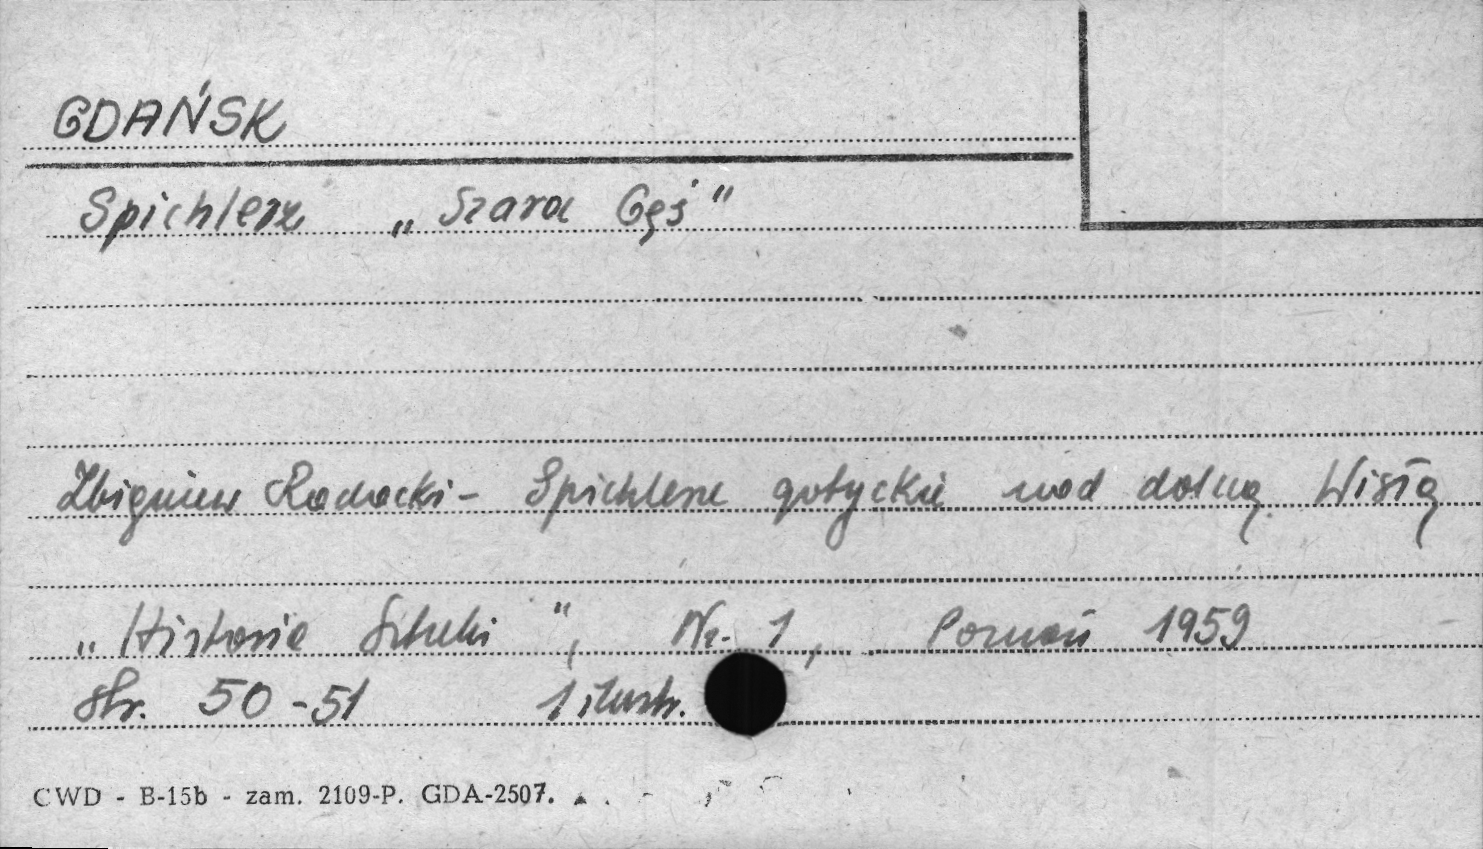 GDAŃSK
Spichlerz „Szara Gęś"
Zbigniew Radacki - Spichlerze gotyckie nad dolną Wisłą
„Historia Sztuki", Nr. 1, Poznań 1959
str. 50-51 1 ilustr.
CWD - B-15b - zam. 2109-P. GDA-2507.